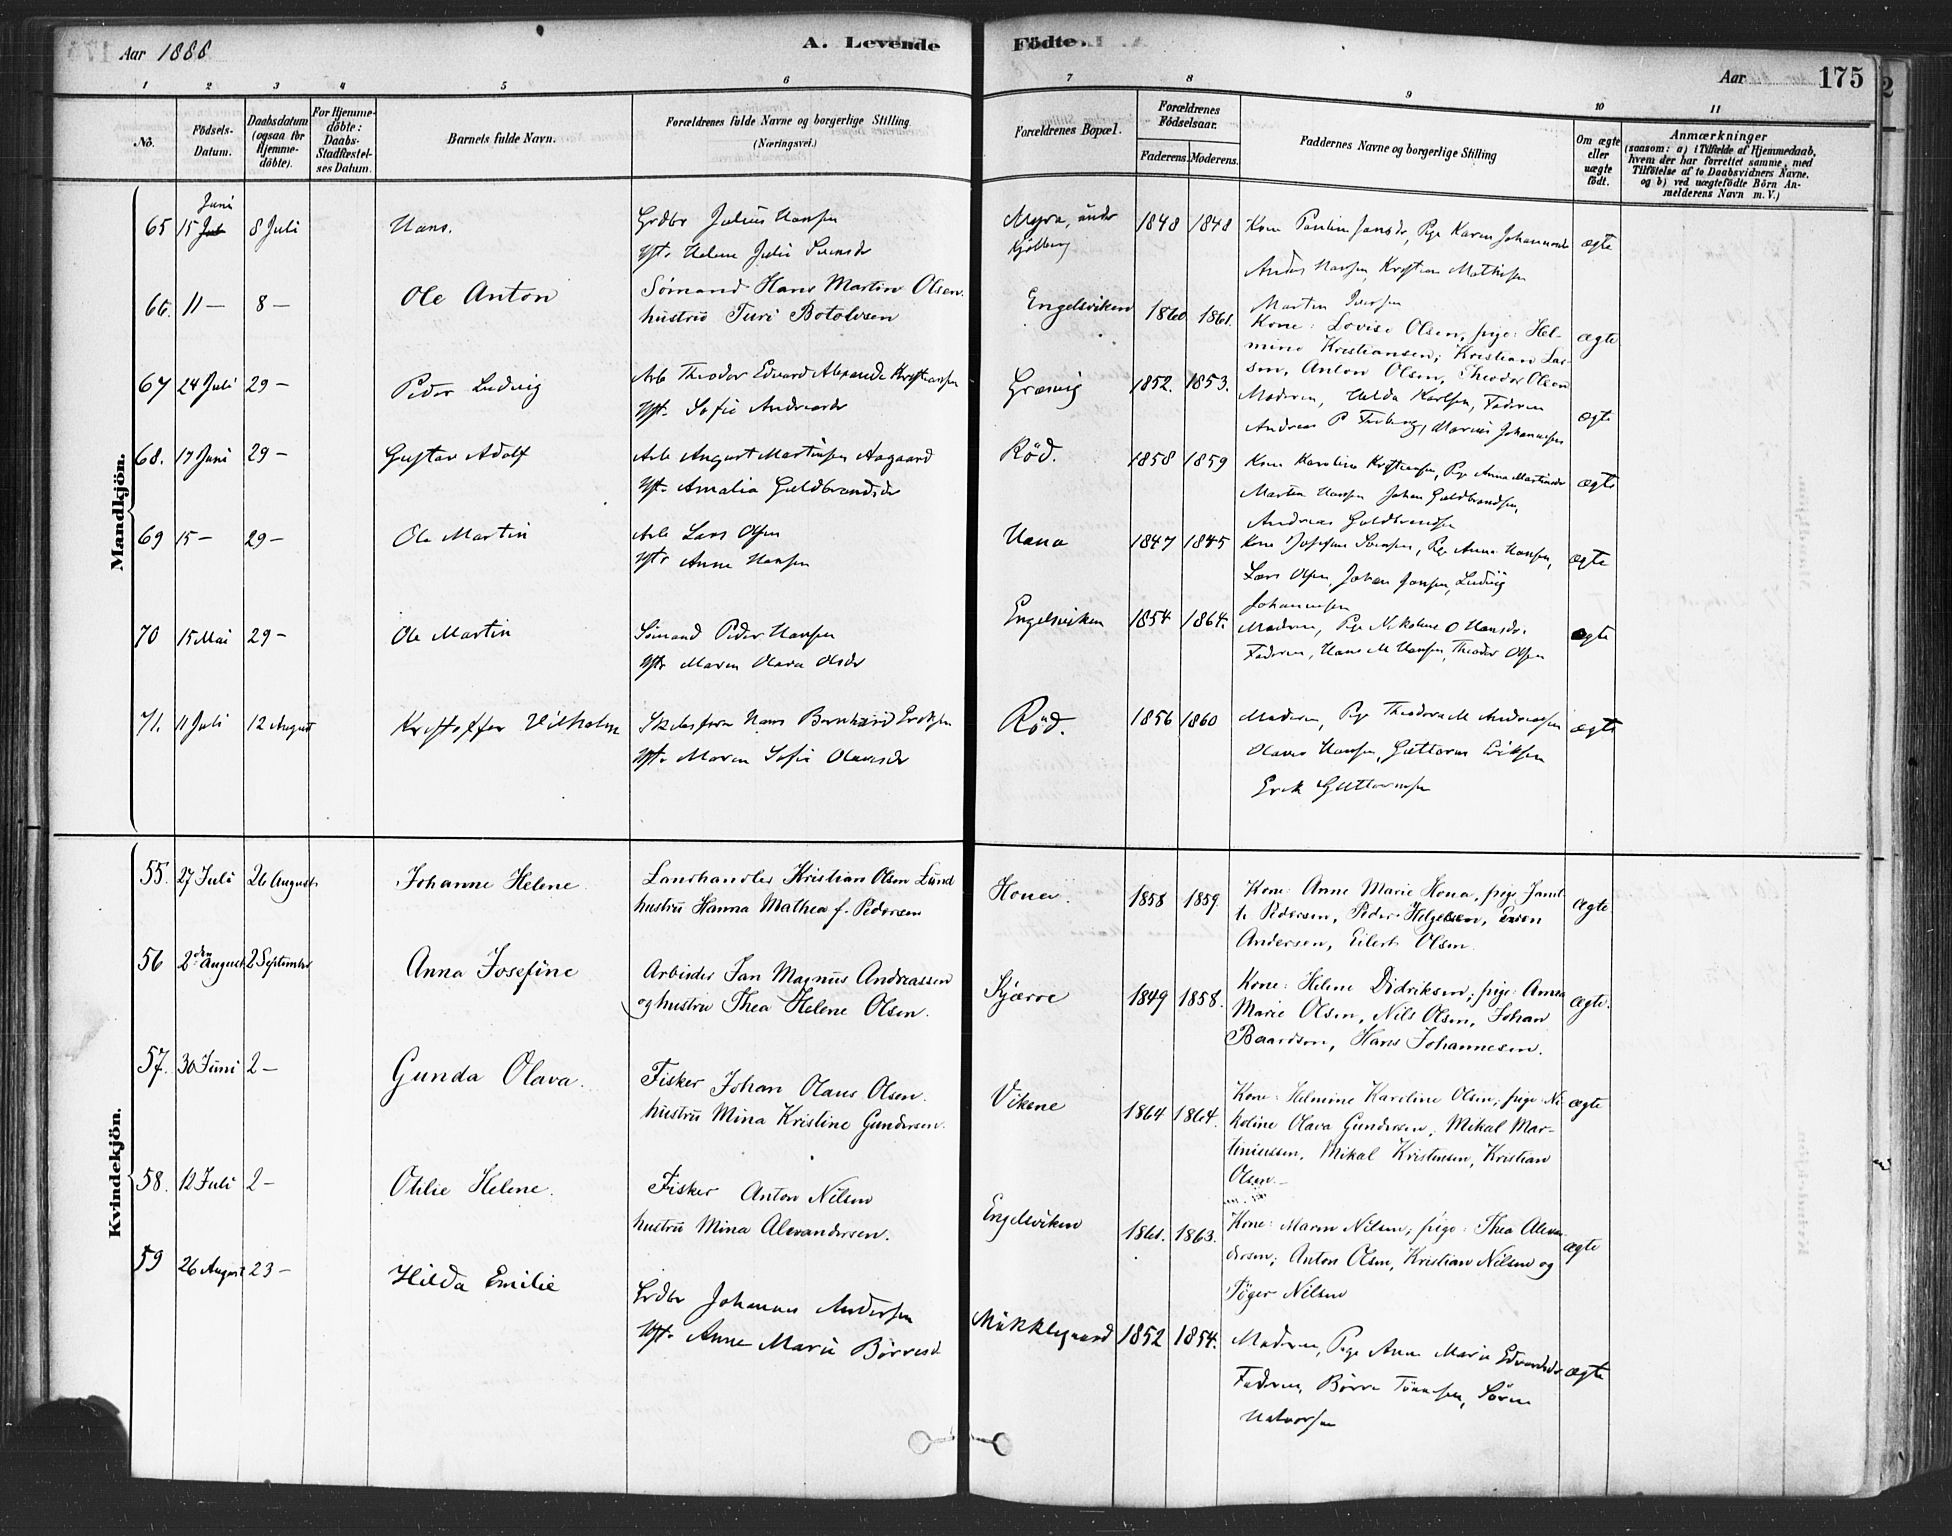 Aar 1888
A. Levende Födte.
Aar 175
1 2 3 4 5 6 7 8 9 10 11
No.
Födsels-Datum.
Daabsdatum (ogsaa for Hjemme-döbte).
For Hjemme-döbte: Daabs-Stadfæstel-ses Datum.
Barnets fulde Navn.
Forældrenes fulde Navne og borgerlige Stilling (Næringsvei.)
Forældrenes Bopæl.
Forældrenes Födselsaar.
Faderens. Moderens.
Faddernes Navne og borgerlige Stilling
Om ægte eller uægte födt.
Anmærkninger
(saasom: a) i Tilfælde af Hjemmedaab, hvem der har forrettet samme, med Tilföielse af to Daabsvidners Navne, og b) ved uægtefödte Börn An-melderens Navn m. V.)
Mandkjön.
65 15 Juni 8 Juli Hans.
Grdbr Julius Hansen
Hst. Helene Julie
Myra, under Kjölberg
1848 1848
Kone Pauline Jansdr, Pge Karen
Anders Hansen, Kristian Mathisen
Martin Iversen
ægte
66. 11 — 8 — Ole Anton
Sömand Hans Martin Olsen.
hustru Turi Botolvsen
Engelsviken 1860 1861.
Kone: Lovise Olsen, pige: Hel-
mine Kristiansen; Kristian Lar-
sen, Anton Olsen, Theodor Olsen
ægte
67 24 Juli 29 — Peder Ludvig
Arb Theodor Edvard Alexander Kristiansen
Hst. Sofie Andreasdr
Græsvig 1852. 1853.
Moderen, Hilda Karlsen, Faderen
Andreas P , Marius Johannesen
ægte
68. 17 Juni 29 — Gustav Adolf
Arb August Martinsen Aagaard
Hst. Amalia Guldbrandsdr
Röd. 1858 1859
Kone Karoline Kristiansen, Pge Anna Martinsdr
Martin Hansen Johan Guldbrandsen,
Andreas Guldbrandsen
ægte
69 15 — 29 — Ole Martin
Arb Lars Olsen
Hst. Anne Hansen
Hana 1847 1845
Kone Josefine , Pge Anna Hansen,
Lars Olsen, Johan Jansen, Ludvig
Johannesen
ægte
70 15 Mai 29 — Ole Martin
Sömand Peder Hansen
Hst. Maren Olava Olsdr
Engelsviken 1854 1864.
Moderen, Pge Nikoline O Hansdr.
Faderen, Hans M Hansen, Theodor Olsen
ægte
71. 11 Juli 12 August Kristoffer Vilhelm
Hans Bernhard Eriksen
Hst. Maren Sofie Olavesdr
Röd. 1856 1860
Moderen, Pge Theodora M Andreassen
Olaves Hansen, Guttorm Eriksen
Erik Guttormsen
ægte
Kvindekjön.
55. 27 Juli 26 August Johanne Helene
Landhandler Kristian Olsen Lund
hustru Hanna Mathea f. Pedersen
Hona. 1858 1859.
Kone: Anne Marie Hona, pige
Pedersen, Peder Helgesen,
Andersen, Eilert Olsen.
ægte
56 2den August 2 September Anna Josefine
Arbeider Jan Magnus Andreassen
og hustru Thea Helene Olsen.
Kjærre 1849 1858.
Kone: Helene Didriksen; pige: Anna
Marie Olsen, Nils Olsen, Johan
Baardsen, Hans Johannesen.
ægte.
57. 30 Juni 2 — Gunda Olava.
Fisker Johan Olaus Olsen.
hustru Mina Kristine Gundersen.
Vikene 1864 1864.
Kone: Helmine Karoline Olsen; pige: Ni-
koline Olava Gundersen; Mikal Mar-
tiniussen, Mikal Kristensen, Kristian
Olsen.
ægte
58. 12 Juli 2 — Othlie Helene.
Fisker Anton Nilsen
hustru Mina Alexandersen.
Engelsviken 1861. 1863.
Kone: Maren Nilsen; pige: Thea Alexan-
dersen; Anton Olsen, Kristian Nilsen og
Föger Nilsen
ægte
59 26 August 23 — Hilda Emilie
Grdbr Johannes Andersen
Hst. Anne Marie Börresd
Mikklegaard 1852 1854.
Moderen, Pge Anne Marie Edvardsdr
Faderen, Börre Tönnesen, Sören
Halvorsen
ægte